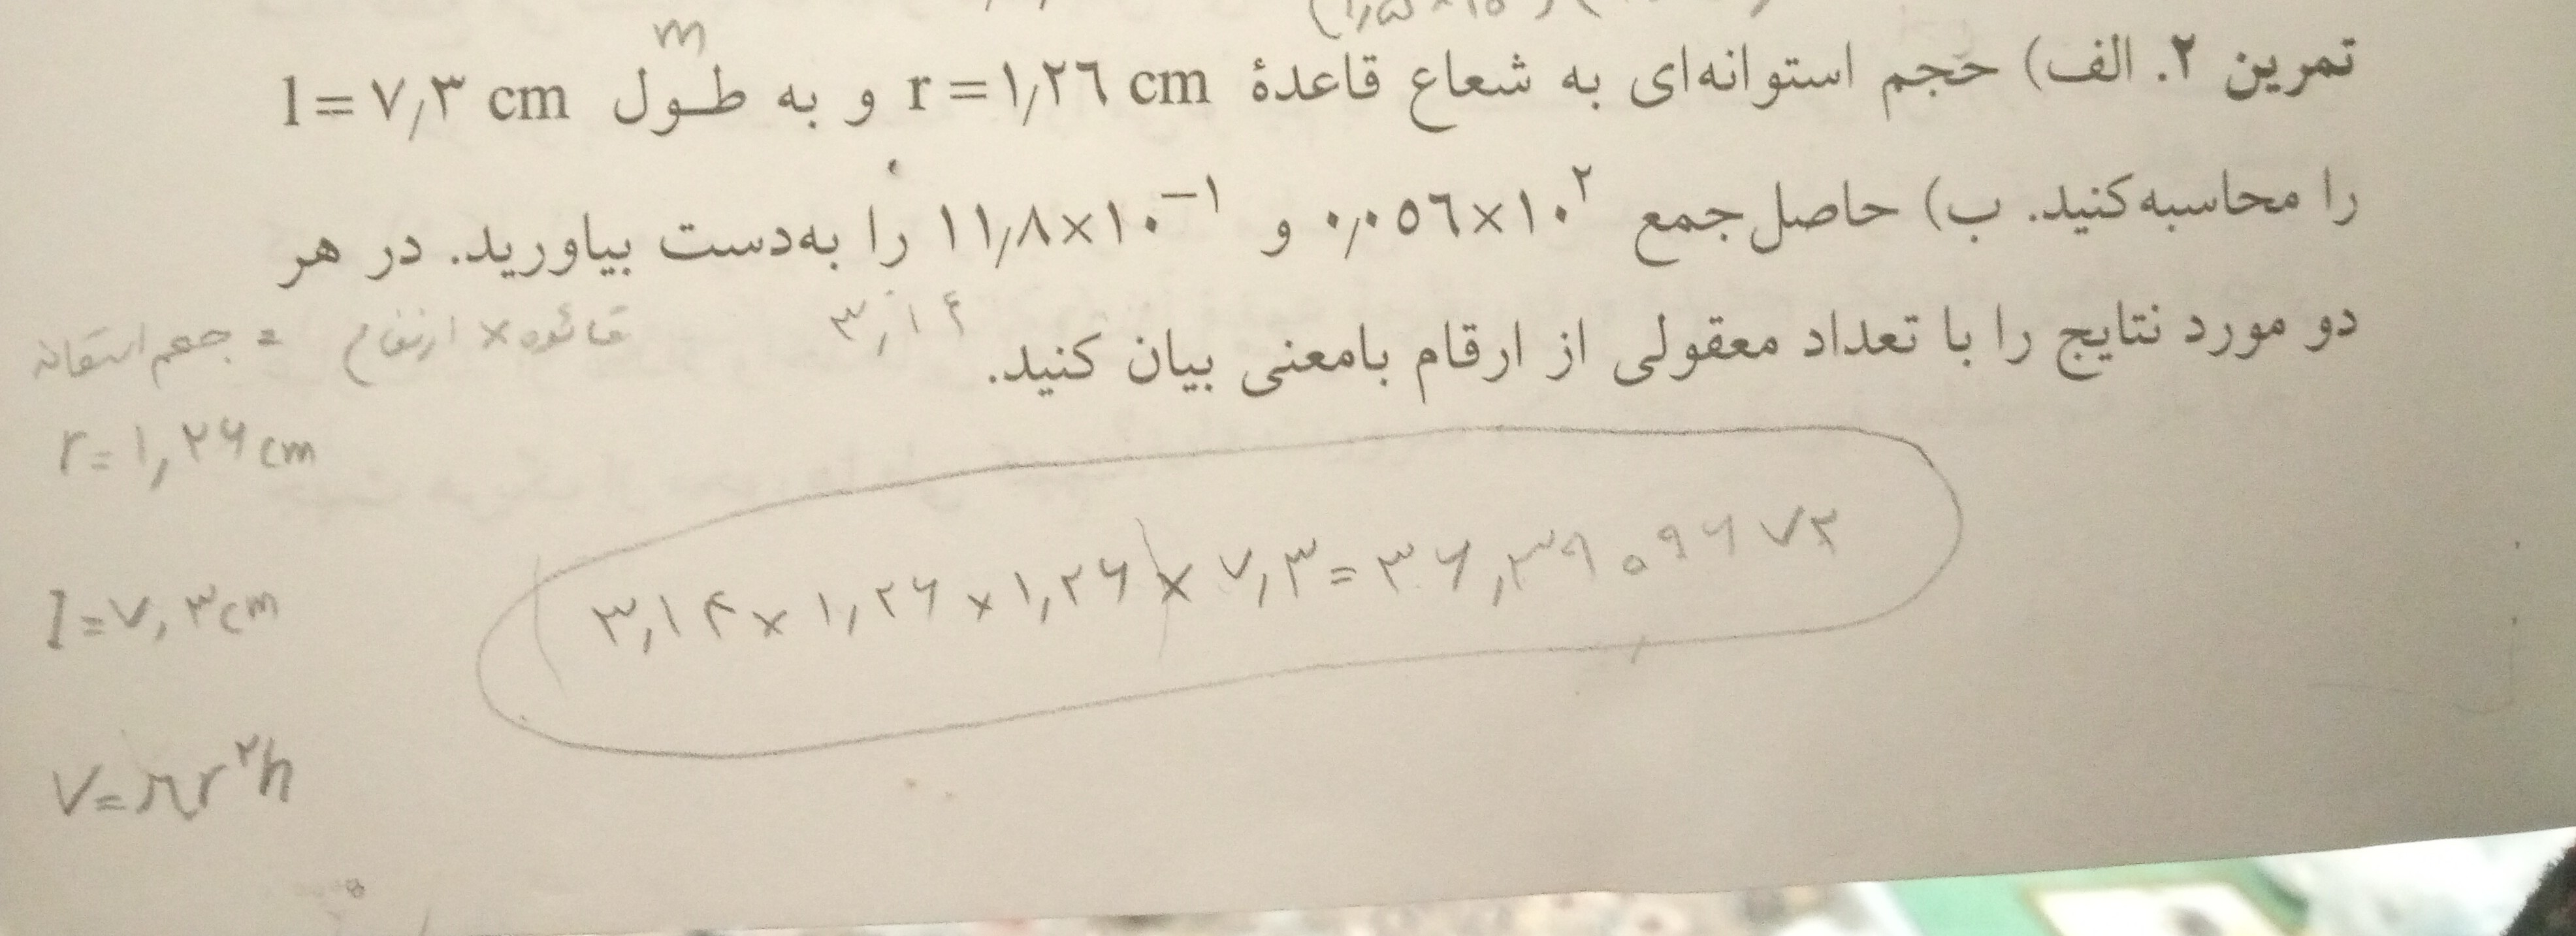 m
تمرین ۲. الف) حجم استوانه‌ای به شعاع قاعدهٔ r = ۱٫۲۶ cm و به طول l = ۷٫۳ cm
را محاسبه کنید. ب) حاصل جمع ۰٫۰۵۶×۱۰^۲ و ۱۱٫۸×۱۰^−۱ را به‌دست بیاورید. در هر
دو مورد نتایج را با تعداد معقولی از ارقام بامعنی بیان کنید.
۳,۱۴
= ارتفاع × قائوه
r = ۱,۲۶ cm
۳,۱۴ × ۱,۲۶ × ۱,۲۶ × ۷,۳ = ۳۶,۳۹۰۹۶۷۲
l = ۷,۳ cm
V = πr^۲h